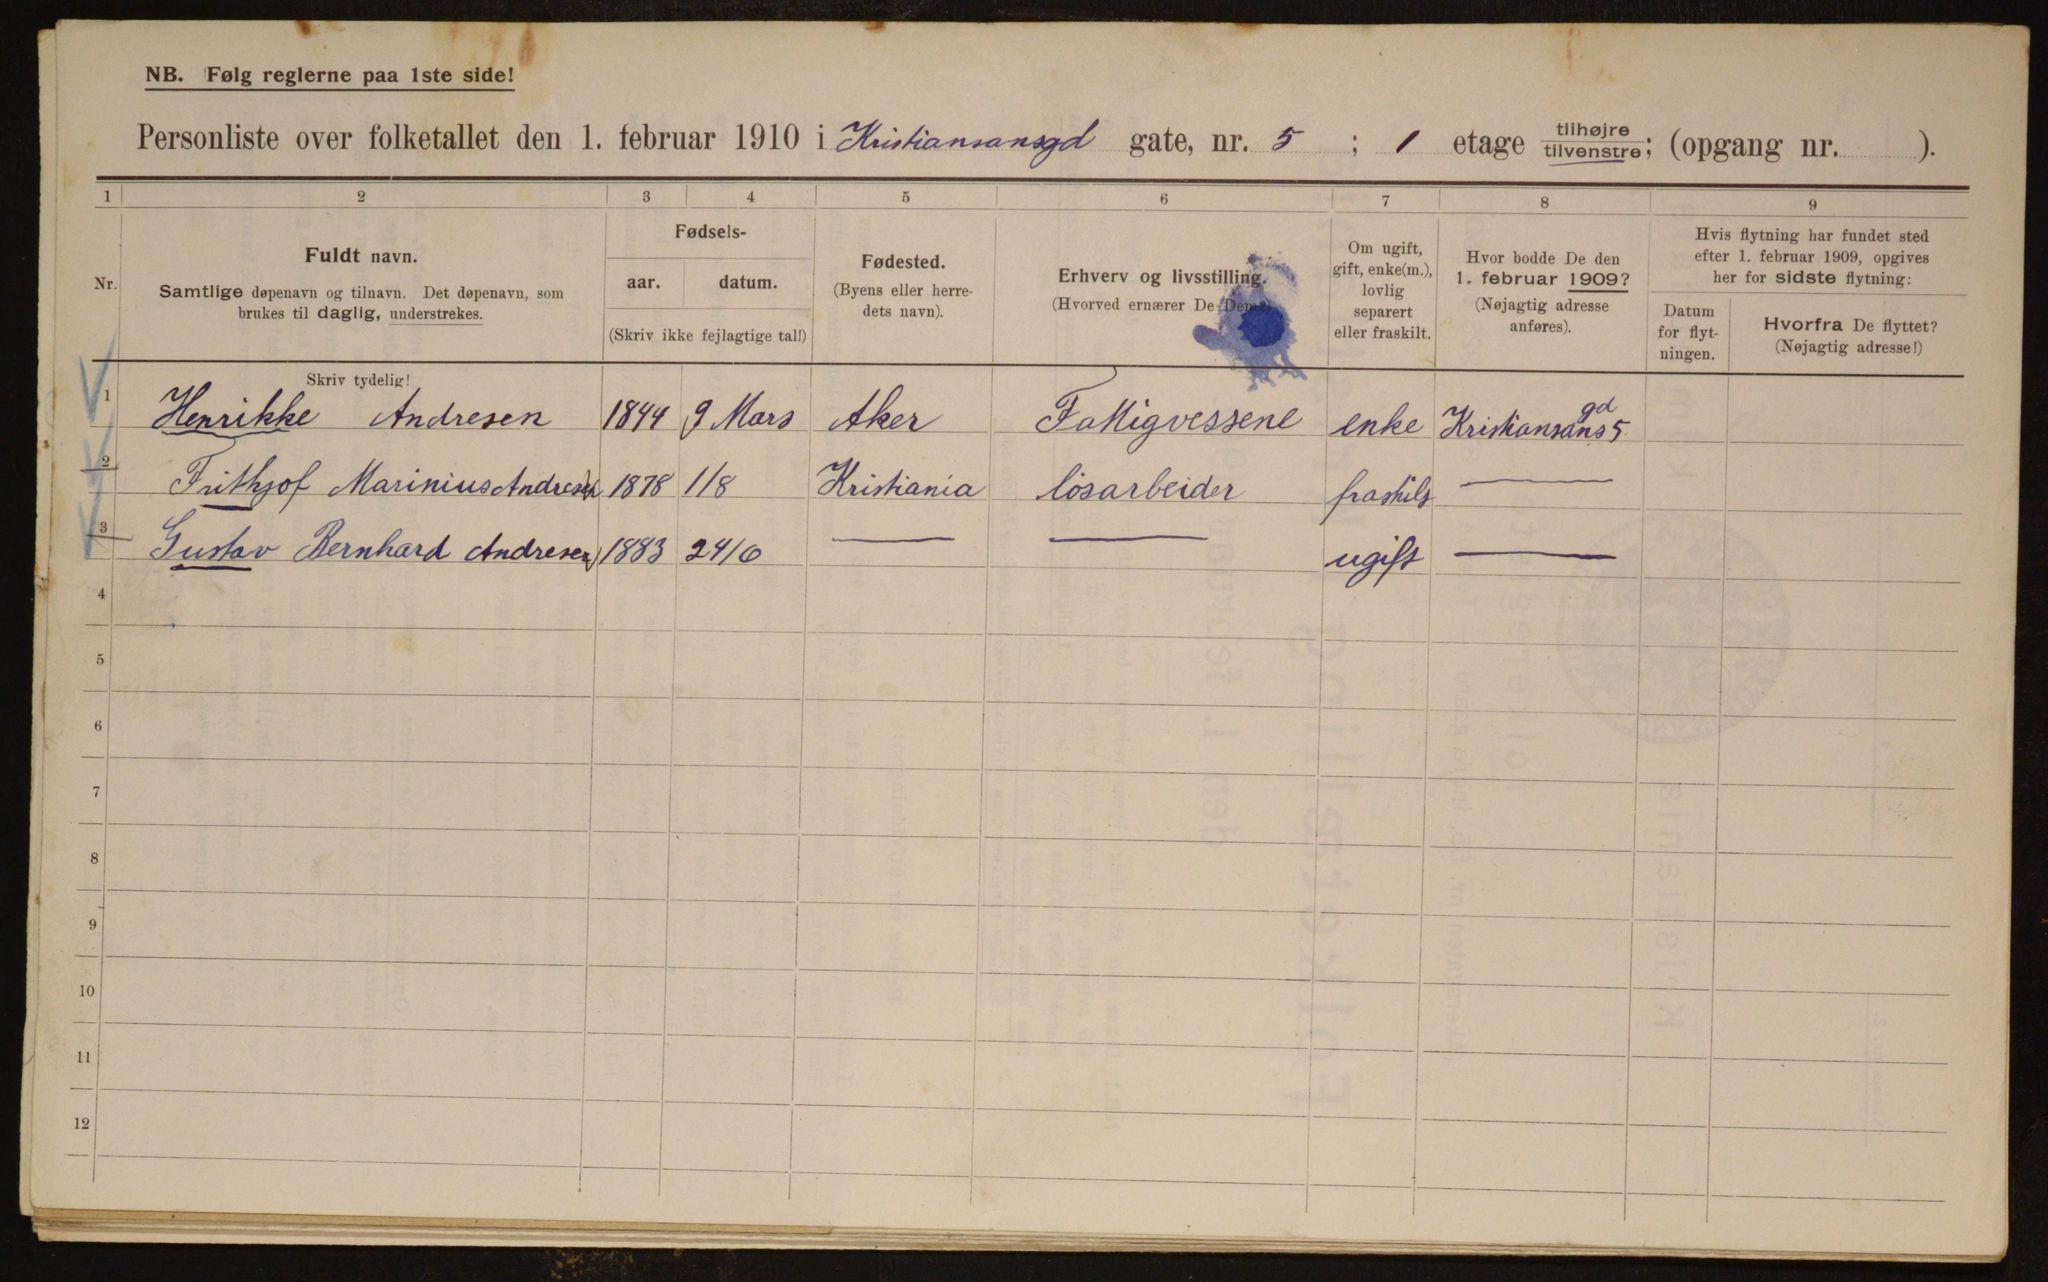 NB. Følg reglerne paa 1ste side!
Personliste over folketallet den 1. februar 1910 i Kristiansansgd gate, nr. 5 ; 1 etage tilhøjre tilvenstre; (opgang nr. ).
1 2 3 4 5 6 7 8 9
Nr.
Fuldt navn.
Samtlige døpenavn og tilnavn. Det døpenavn, som
brukes til daglig, understrekes.
Fødsels-
aar. datum.
(Skriv ikke fejlagtige tal!)
Fødested.
(Byens eller herre-
dets navn).
Erhverv og livsstilling.
(Hvorved ernærer De Dem?)
Om ugift,
gift, enke(m.),
lovlig
separert
eller fraskilt.
Hvor bodde De den
1. februar 1909?
(Nøjagtig adresse
anføres).
Hvis flytning har fundet sted
efter 1. februar 1909, opgives
her for sidste flytning:
Datum
for flyt-
ningen.
Hvorfra De flyttet?
(Nøjagtig adresse!)
Skriv tydelig!
1 Henrikke Andresen 1844 9 Mars Aker Fattigvessene enke Kristiansansgd 5
2 Frithjof Marinius Andresen 1878 1/8 Kristiania løsarbeider fraskilt —
3 Gustav Bernhard Andresen 1883 24/6 — — ugift —
4
5
6
7
8
9
10
11
12